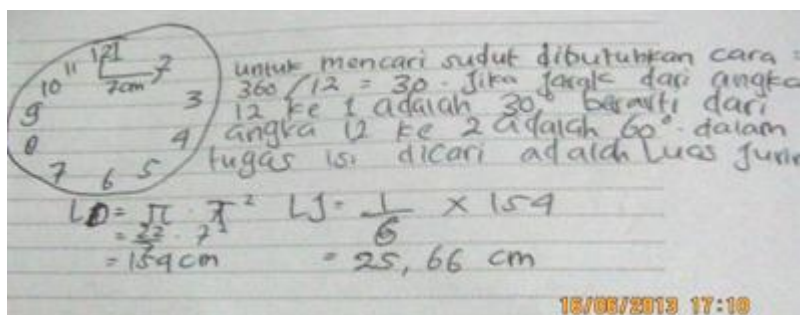 12 1
11 2
10 7cm
9 3
8 4
7 6 5
untuk mencari sudut dibutuhkan cara =
360/12 = 30. Jika Jarak dari angka
12 ke 1 adalah 30° berarti dari
angka 12 ke 2 adalah 60°. dalam
tugas isi dicari adalah Luas Jurin
LO = π . r² LJ = 1/6 × 154
= 22/7 . 7²
= 154 cm = 25,66 cm
16/06/2013 17:10